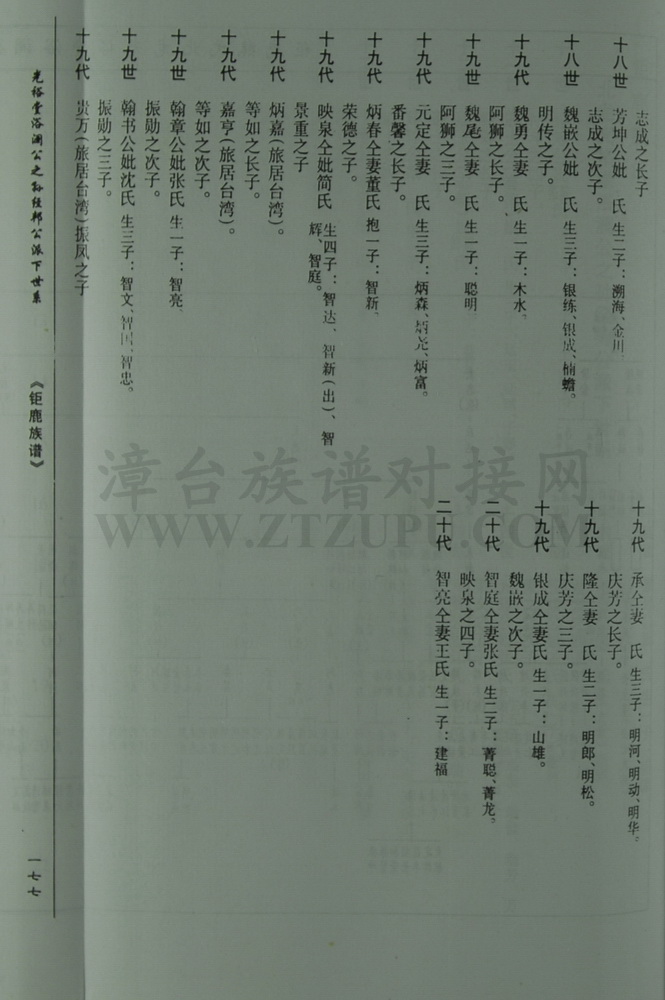 志成之长子
十八世 芳坤公妣 氏 生二子：溯海、金川。
志成之次子。
十八世 魏嵌公妣 氏 生三子：银练、银成、楠蟾。
明传之子。
十九代 魏勇仝妻 氏 生一子：木水。
阿狮之长子。
十九世 魏尾仝妻 氏 生一子：聪明
阿狮之三子。
十九代 元定仝妻 氏 生三子：炳森、炳尧、炳富。
番馨之长子。
十九代 炳春仝妻董氏 抱一子：智新。
荣德之子。
十九代 映泉仝妣简氏 生四子：智达、智新（出）、智辉、智庭。
景重之子
十九代 炳嘉（旅居台湾）。
等如之长子。
十九代 嘉亨（旅居台湾）。
等如之次子。
十九世 翰章公妣张氏 生一子：智亮
振勋之次子。
十九世 翰书公妣沈氏 生三子：智文、智国、智忠。
振勋之三子。
十九代 贵万（旅居台湾）振凤之子
十九代 承仝妻 氏 生三子：明河、明动、明华。
庆芳之长子。
十九代 隆仝妻 氏 生二子：明郎、明松。
庆芳之三子。
十九代 银成仝妻氏 生一子：山雄。
魏嵌之次子。
二十代 智庭仝妻张氏 生二子：菁聪、菁龙。
映泉之四子。
二十代 智亮仝妻王氏 生一子：建福
光裕堂浴澜公之孙经邦公派下世系
《钜鹿族谱》
一七七
漳台族谱对接网
WWW.ZTZUPU.COM